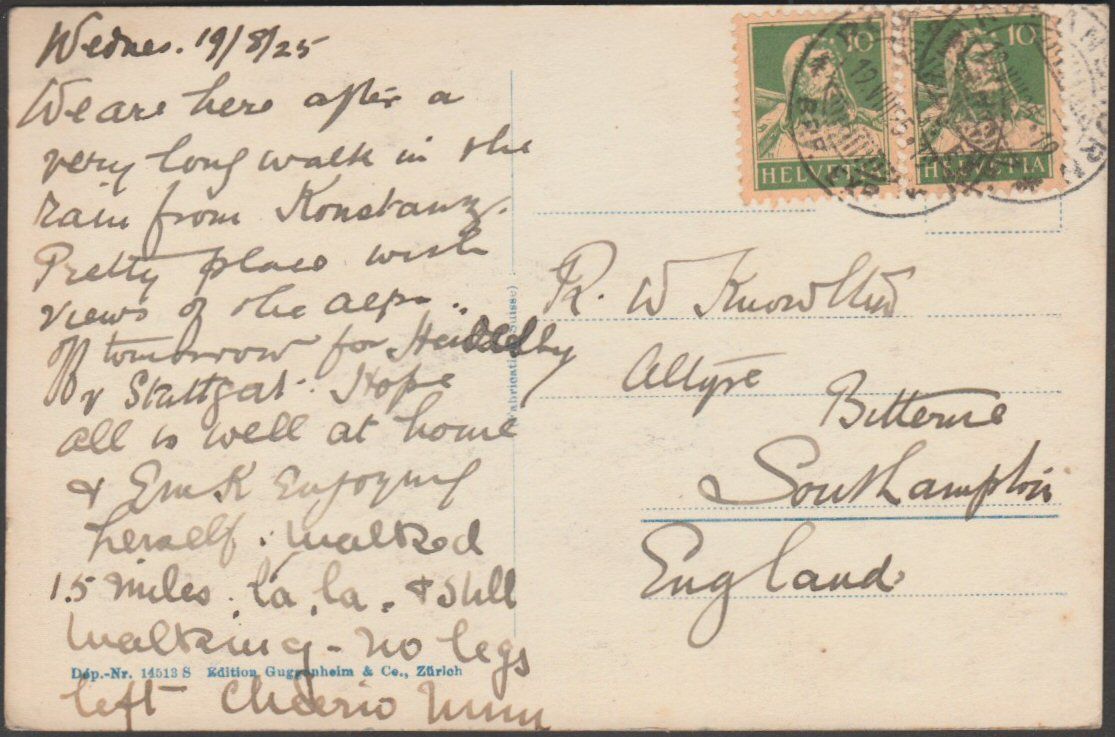 Wednes. 19/8/25
We are here after a
very long walk in the
rain from Konstanz.
Pretty place with
views of the alps..
off tomorrow for
& Stuttgat. Hope
all is well at home
& Em K Enjoying
herself. Walked
15 miles. la, la. & still
walking - no legs
left Cheerio
Dép.-Nr. 14513 S Edition Guggenheim & Co., Zürich
(Fabrication Suisse)
10
HELVETIA
10
HELVETIA
R. W Knowlton
Altyre
Bitterne
Southampton
England.